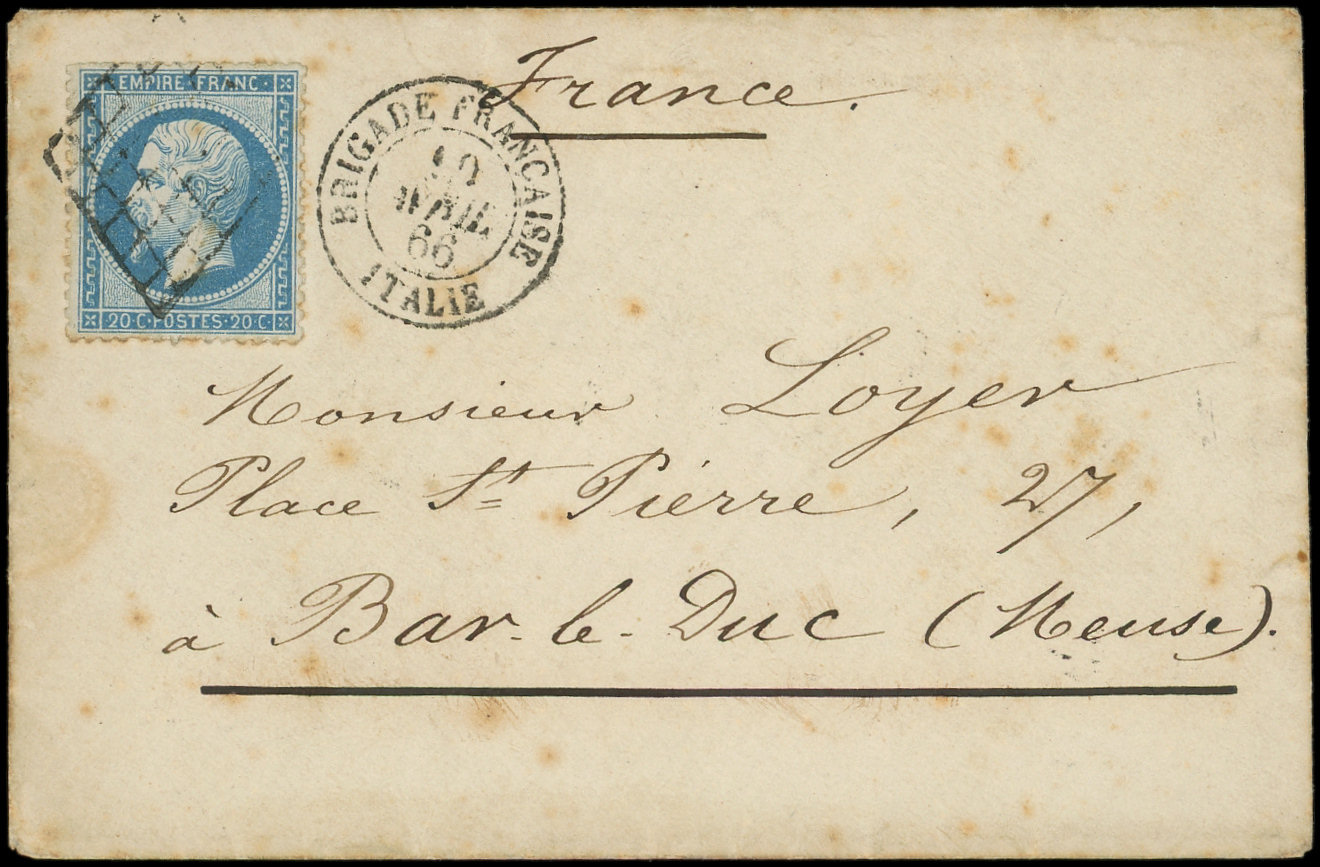 EMPIRE·FRANC·
20·C·POSTES·20·C·
BRIGADE FRANÇAISE
AVRIL
66
ITALIE
France.
Monsieur Loyer
Place St Pierre, 27,
à Bar-le-Duc (Meuse).